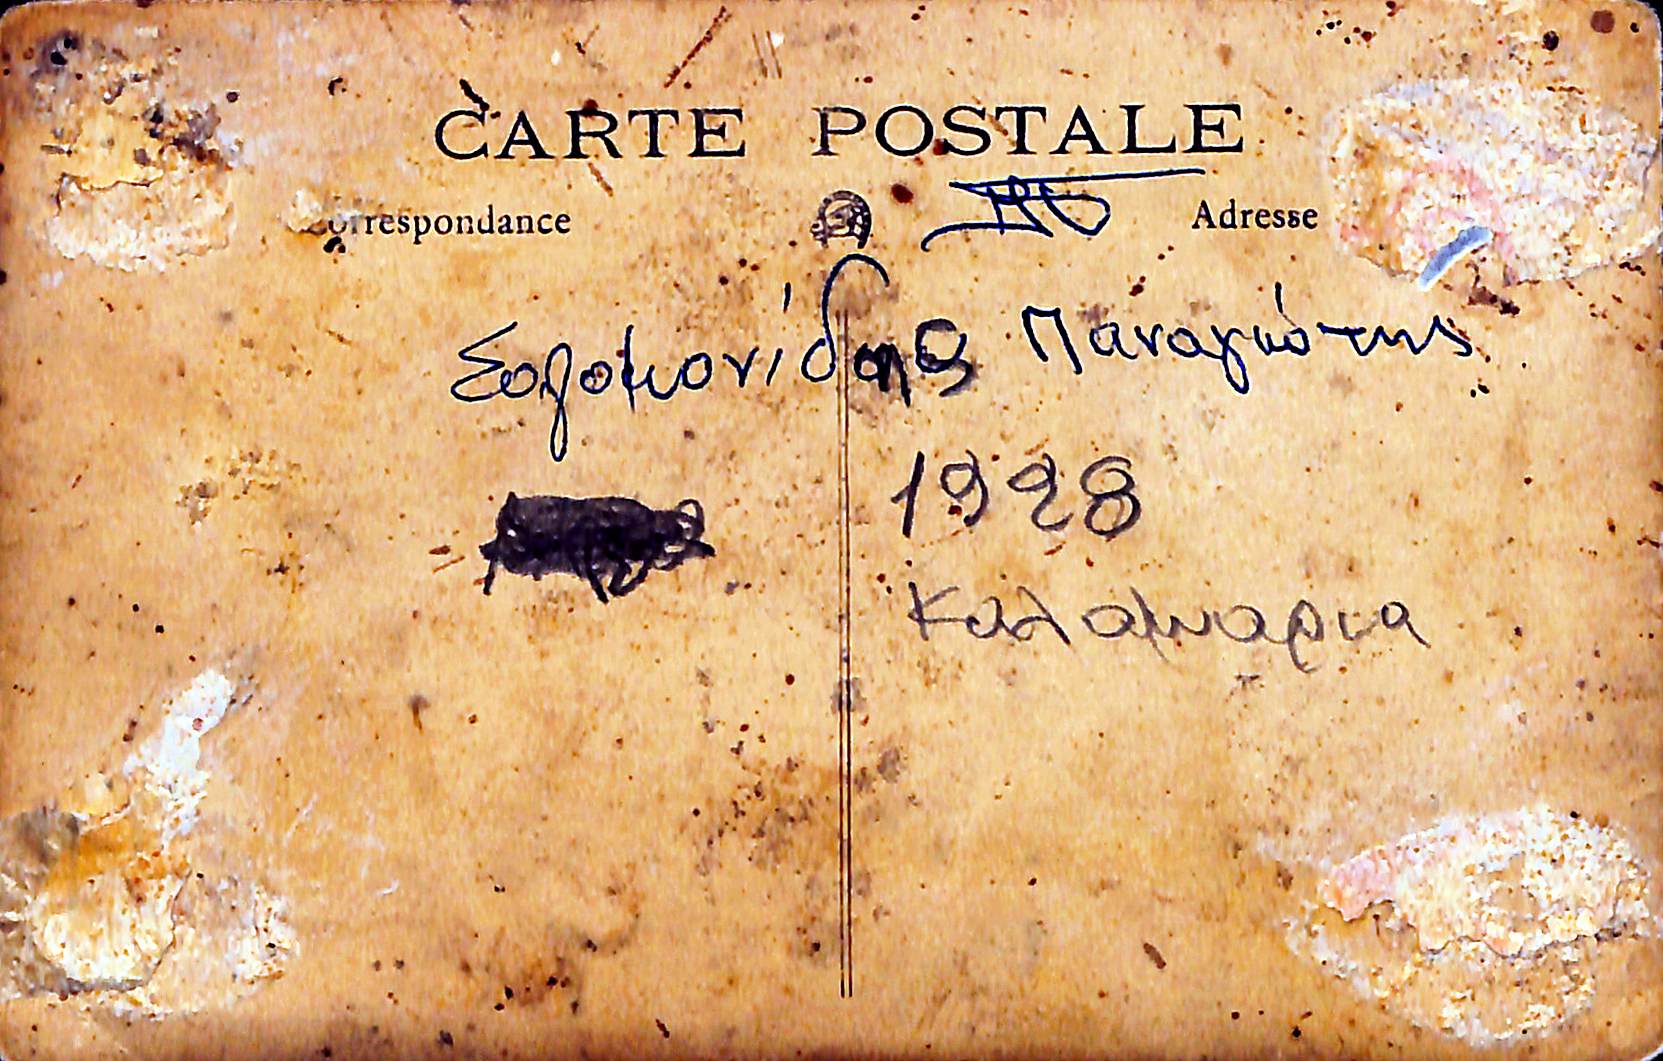 CARTE POSTALE
orrespondance Adresse
Σολομονίδης Παναγιότης
1928
Καλαμαρια